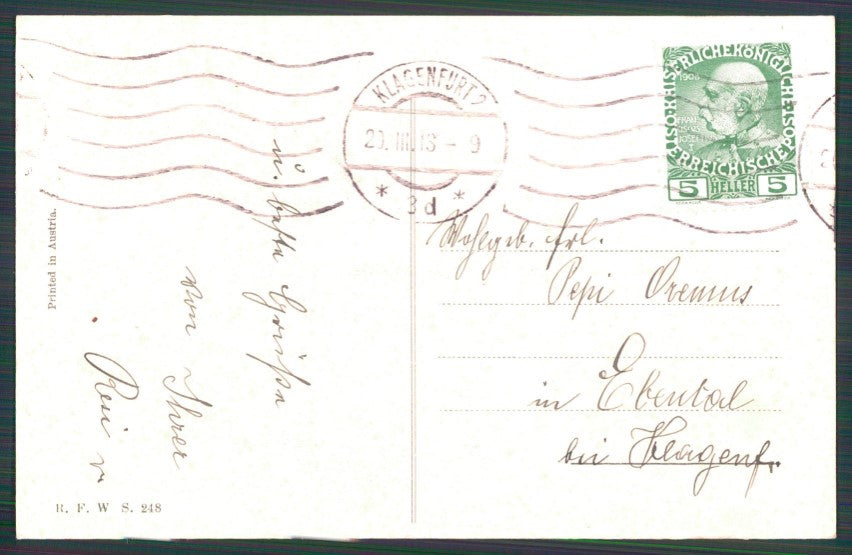 KLAGENFURT 2
20.III.13 - 9
* 3d *
KAISERLICHE KÖNIGLICHE ÖSTERREICHISCHE POST
1908
FRANZ
JOSEF
5 HELLER 5
Printed in Austria.
u. beste Grüße
von Ihrer
Wohlgeb. Frl.
Pepi Oremus
in Ebental
bei Klagenf.
R. F. W S. 248